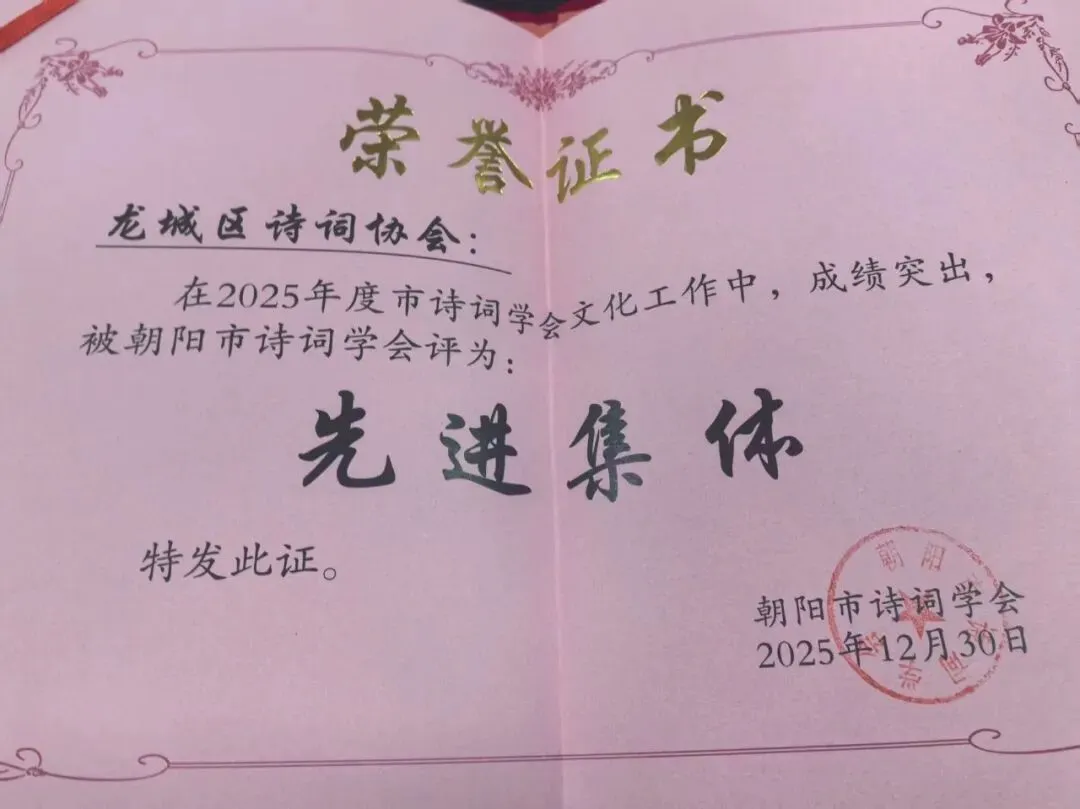 荣誉证书
龙城区诗词协会：
在2025年度市诗词学会文化工作中，成绩突出，
被朝阳市诗词学会评为：
先进集体
特发此证。
朝阳市诗词学会
2025年12月30日
朝阳市诗词学会